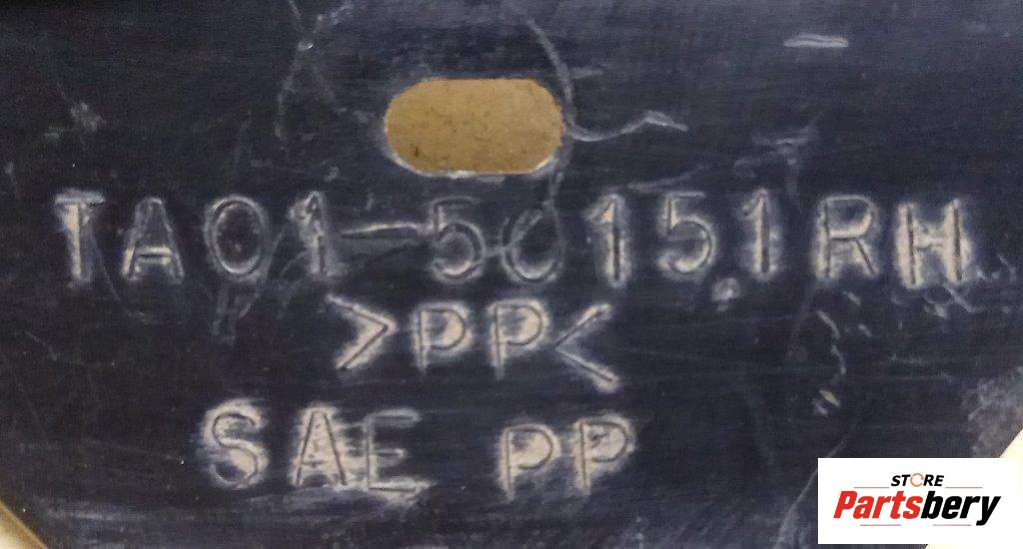 TA01-50151RH
>PP<
SAE PP
STORE
Partsbery